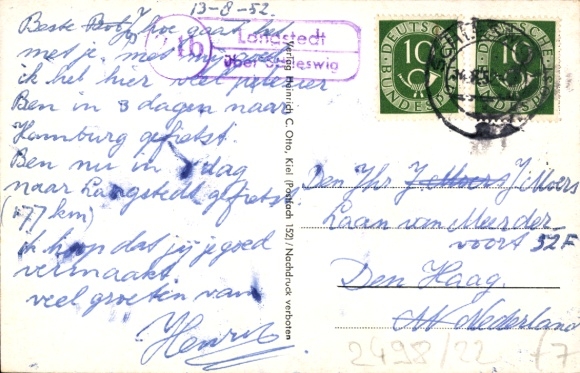 13-8-52.
Beste Bob, hoe gaat het
met je, met mij goed
ik heb hier veel plezier
Ben in 3 dagen naar
Hamburg gefietst.
Ben nu in 1 dag
naar Langstedt gefietst
(177 km)
ik hoop dat jij je goed
vermaakt
veel groeten van
Henri
(16)
Langstedt
über Schleswig
Verlag Heinrich C. Otto, Kiel (Postfach 152) / Nachdruck verboten
DEUTSCHE BUNDESPOST
10
DEUTSCHE BUNDESPOST
10
Den Hr J. Moers J Moers
Laan van Meerder-
voort 52F
Den Haag.
Nederland
2498/22 f7